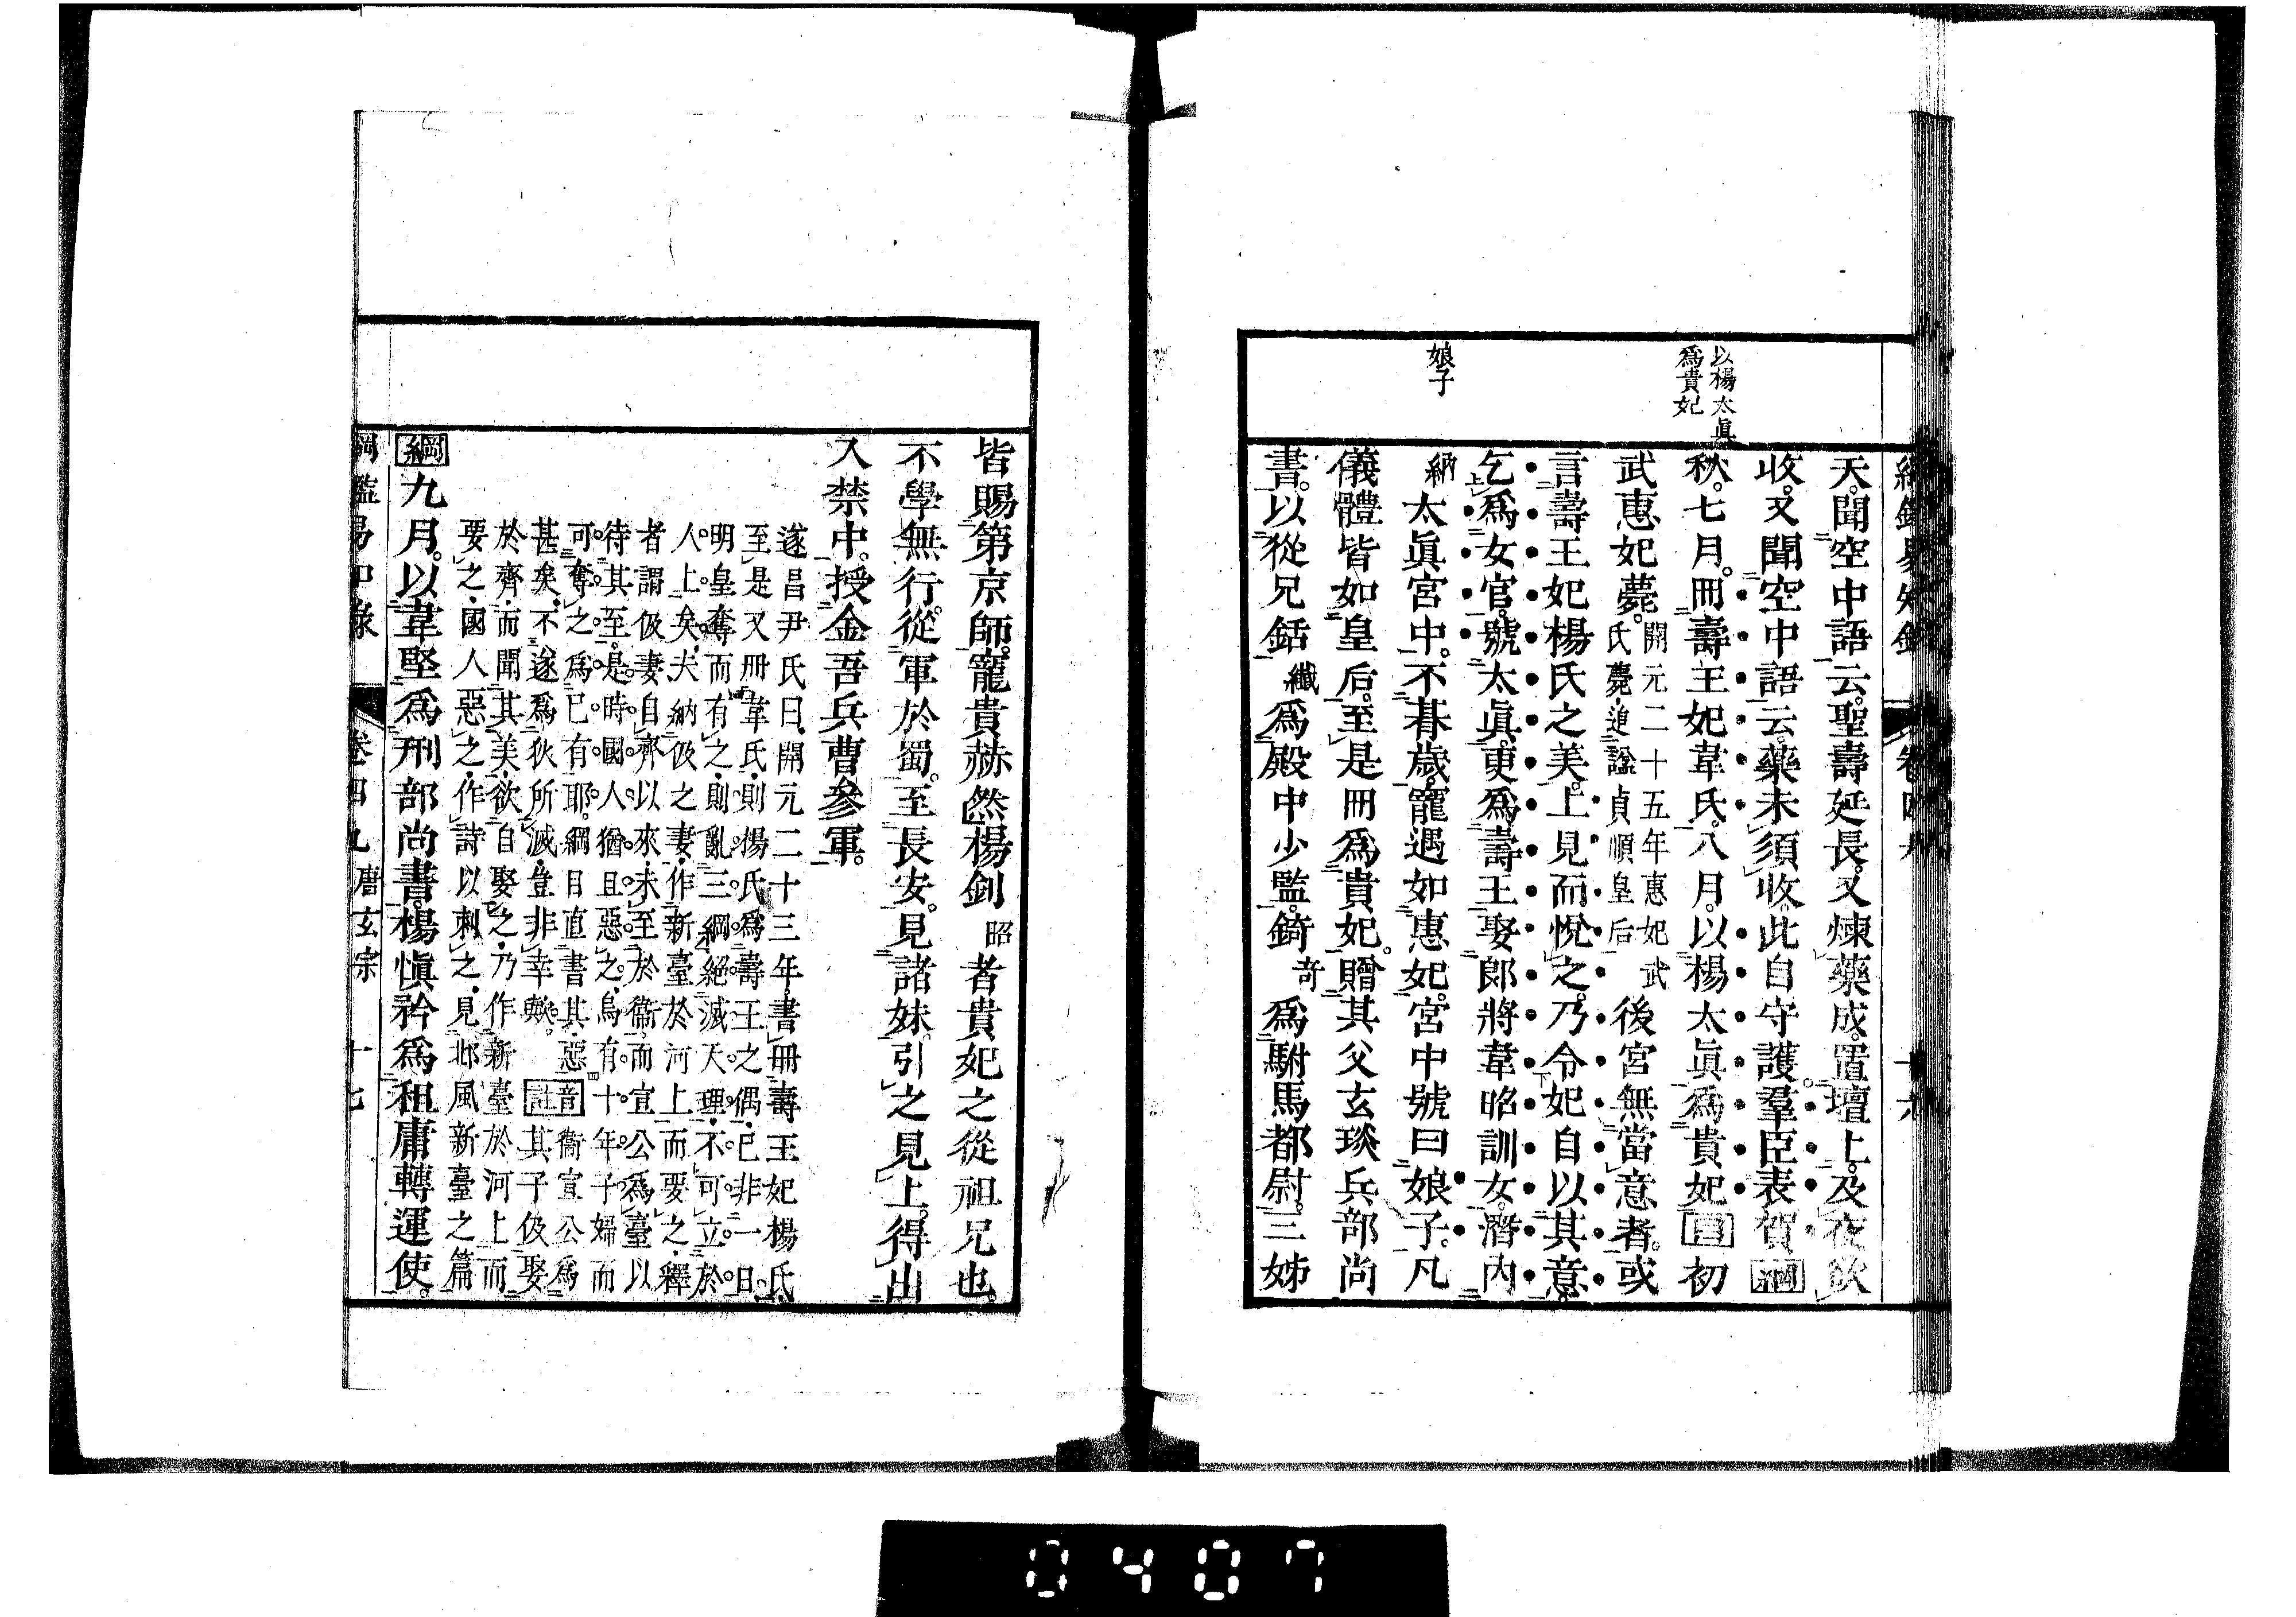 綱鑑易知錄 卷四九 十六
以楊太眞
爲貴妃
娘子
天。聞空中語云。聖壽延長。又煉藥成。置壇上。及夜欲
收。又聞空中語云。藥未須收。此自守護。羣臣表賀綱
秋。七月。冊壽王妃韋氏。八月。以楊太眞爲貴妃目初
武惠妃薨。開元二十五年惠妃武氏薨、追謚貞順皇后後宮無當意者。或
言壽王妃楊氏之美。上見而悅之。乃令妃自以其意
乞爲女官。號太眞。更爲壽王娶郎將韋昭訓女。潛內
納太眞宮中。不朞歲。寵遇如惠妃。宮中號曰娘子。凡
儀體皆如皇后。至是冊爲貴妃。贈其父玄琰兵部尚
書。以從兄銛纖爲殿中少監。錡奇爲駙馬都尉。三姊
皆賜第京師。寵貴赫然楊釗昭者貴妃之從祖兄也。
不學無行。從軍於蜀。至長安。見諸妹。引之見上。得出
入禁中。授金吾兵曹參軍。
遂昌尹氏曰、開元二十三年。書冊壽王妃楊氏、
至是又冊韋氏、則楊氏爲壽王之偶、已非一日、
明皇奪而有之、則亂三綱。絕滅天理、不可立於
人上矣、夫納伋之妻、作新臺於河上而要之、釋
者謂伋妻自齊以來、未至於衞。而宣公爲臺以
待其至。是時國人猶且惡之。烏有十年子婦而
可奪之爲已有耶。綱目直書其惡音衞宣公爲
甚矣、不遂爲狄所滅、豈非幸歟。註其子伋娶
於齊、而聞其美、欲自娶之、乃作新臺於河上而
要之、國人惡之、作詩以刺之、見邶風新臺之篇
綱九月。以韋堅爲刑部尚書。楊愼矜爲租庸轉運使。
綱鑑易知錄 卷四九 唐玄宗 十七
0407